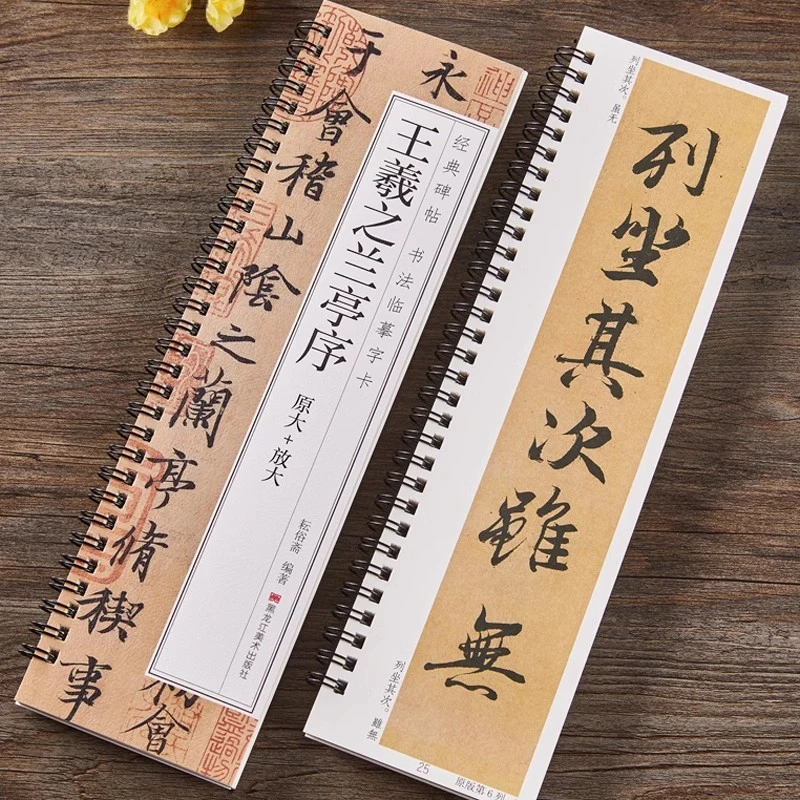 永
會
于會稽山陰之蘭亭脩稧事
经典碑帖 书法临摹字卡
王羲之兰亭序
原大+放大
耘俗斋 编著
黑龙江美术出版社
列坐其次。虽无
列坐其次雖無
列坐其次。雖無
25
原版第6列